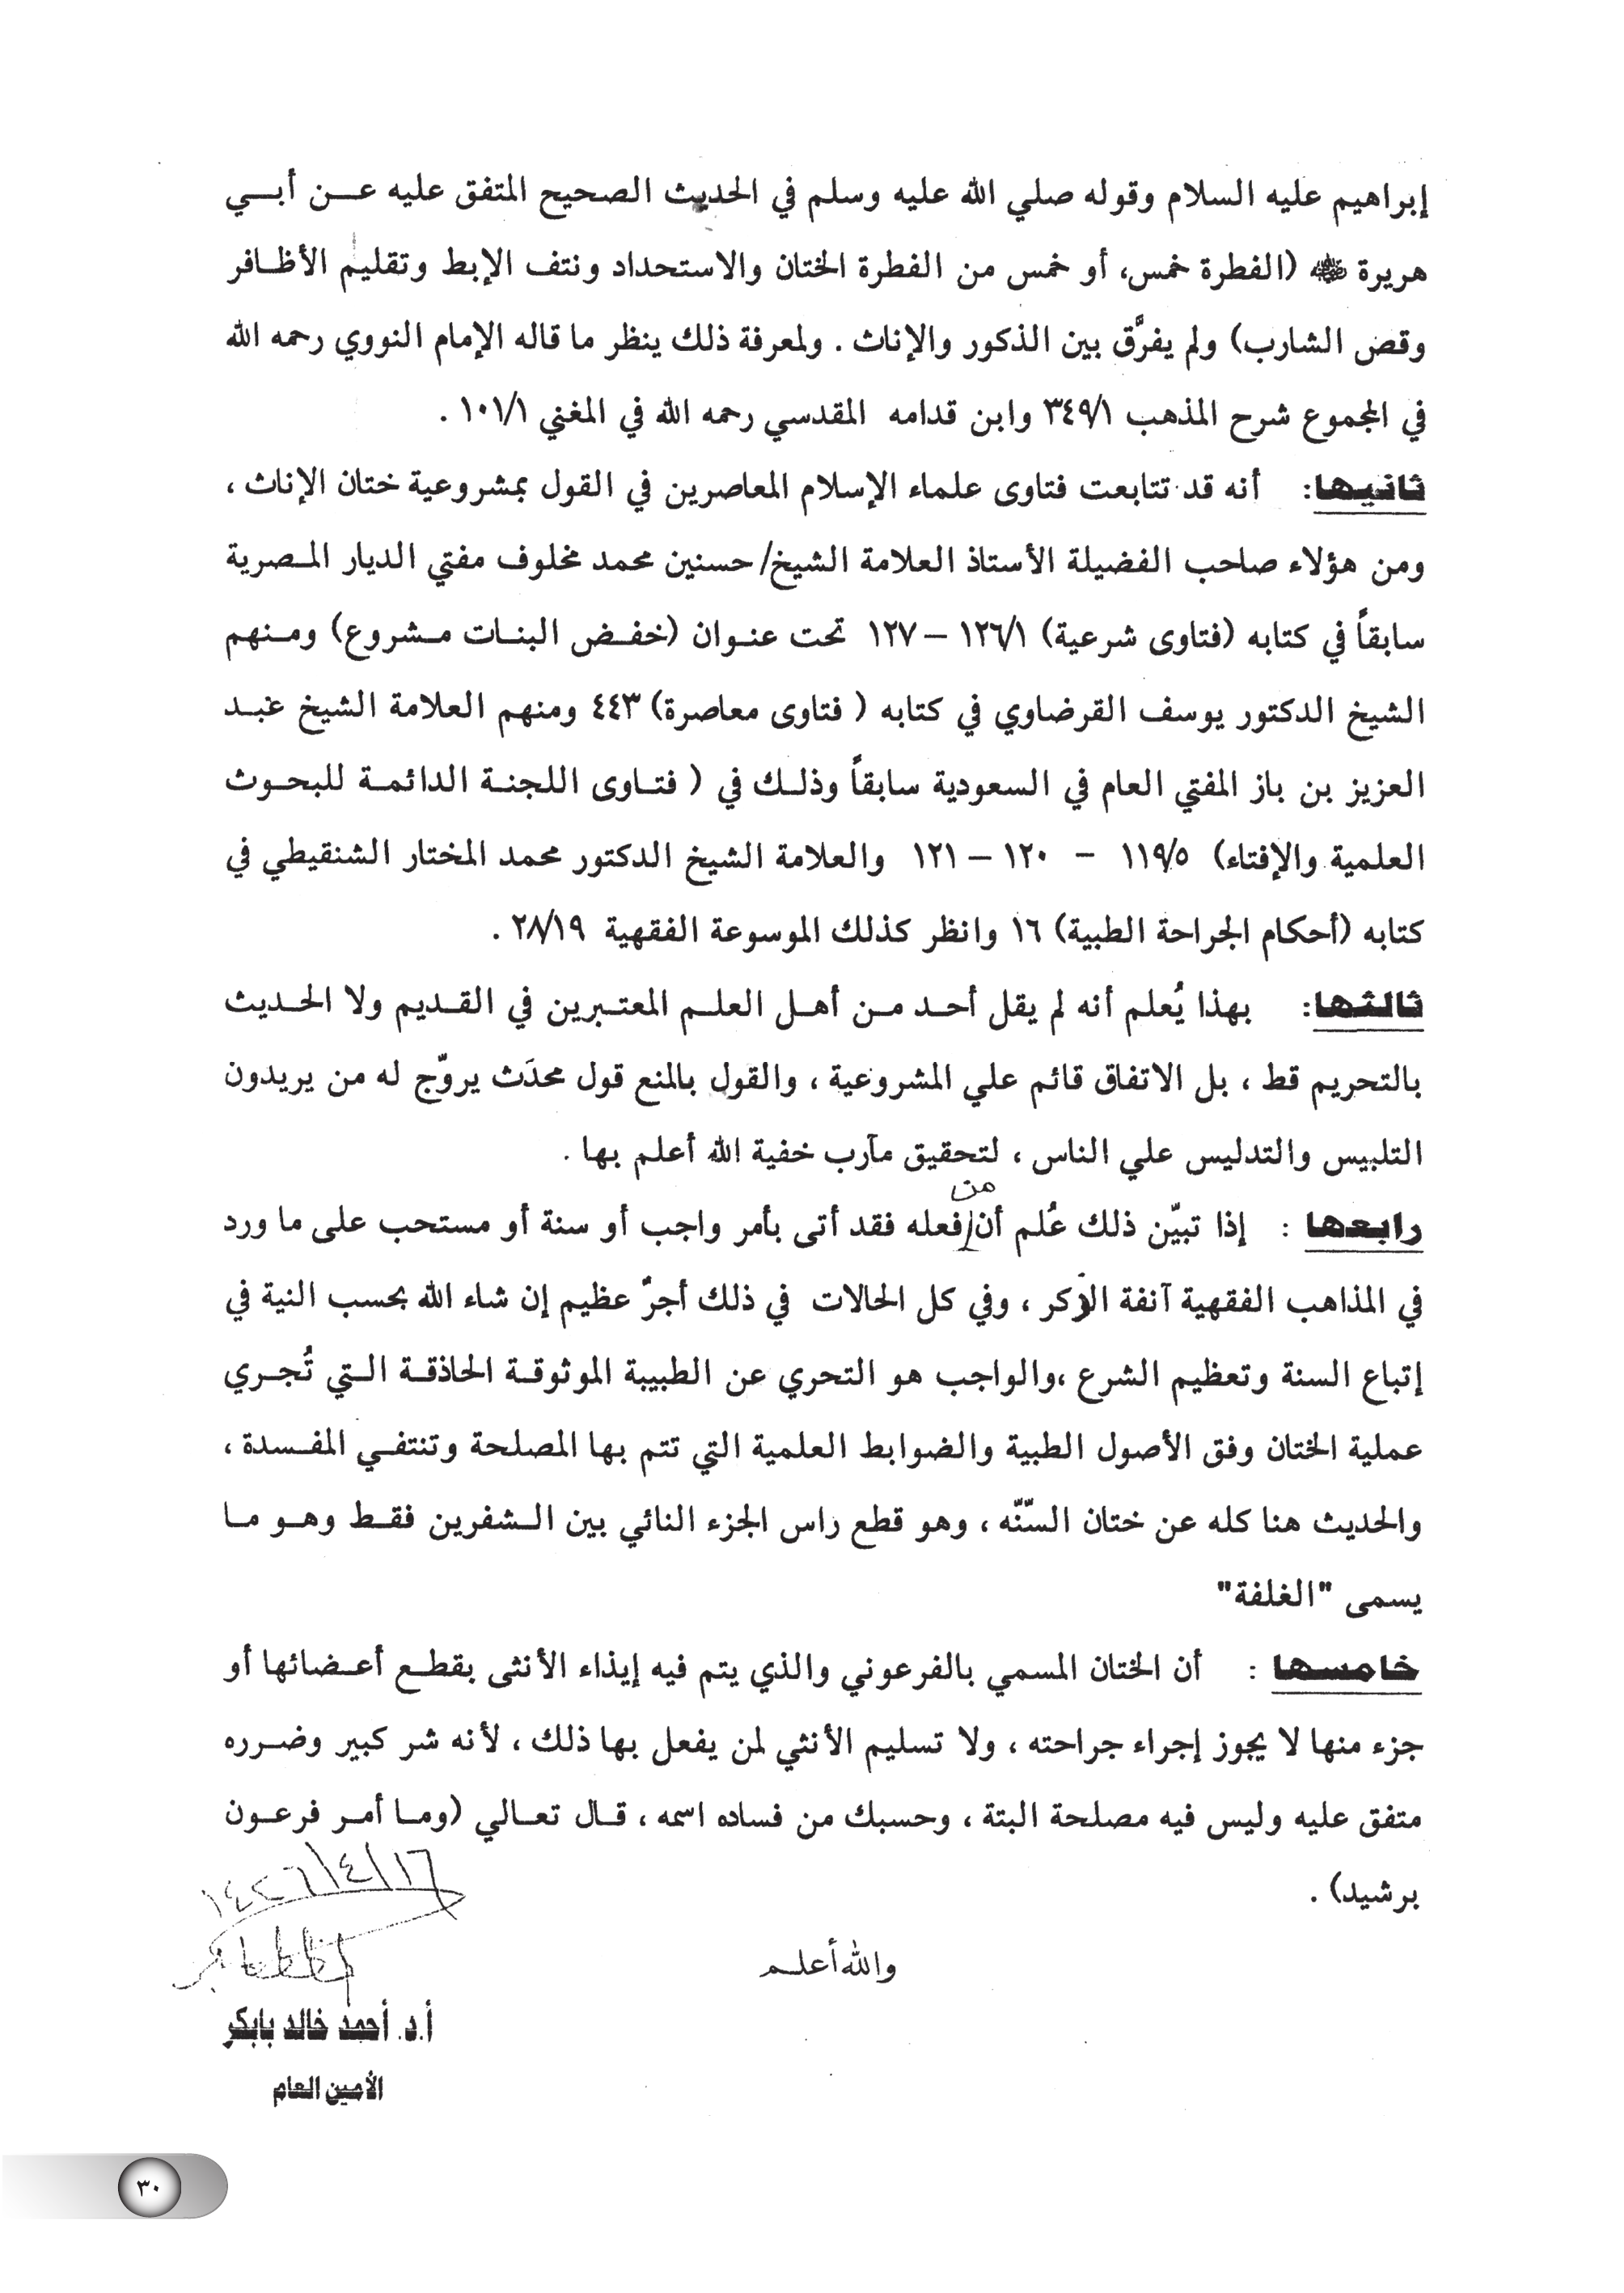 إبراهيم عليه السلام وقوله صلي الله عليه وسلم في الحديث الصحيح المتفق عليه عـــن أبـــي
هريرة ﷺ (الفطرة خمس، أو خمس من الفطرة الختان والاستحداد ونتف الإبط وتقليم الأظـافر
وقص الشارب) ولم يفرَّق بين الذكور والإناث . ولمعرفة ذلك ينظر ما قاله الإمام النووي رحمه الله
في المجموع شرح المذهب ٣٤٩/١ وابن قدامه المقدسي رحمه الله في المغني ١٠١/١ .
ثانيها: أنه قد تتابعت فتاوى علماء الإسلام المعاصرين في القول بمشروعية ختان الإناث ،
ومن هؤلاء صاحب الفضيلة الأستاذ العلامة الشيخ/ حسنين محمد مخلوف مفتي الديار المـصرية
سابقاً في كتابه (فتاوى شرعية) ١٢٦/١ – ١٢٧ تحت عنـوان (خفـض البنـات مـشروع) ومـنهم
الشيخ الدكتور يوسف القرضاوي في كتابه ( فتاوى معاصرة) ٤٤٣ ومنهم العلامة الشيخ عبـد
العزيز بن باز المفتي العام في السعودية سابقاً وذلـك في ( فتـاوى اللجنـة الدائمـة للبحـوث
العلمية والإفتاء) ١١٩/٥ – ١٢٠ – ١٢١ والعلامة الشيخ الدكتور محمد المختار الشنقيطي في
كتابه (أحكام الجراحة الطبية) ١٦ وانظر كذلك الموسوعة الفقهية ٢٨/١٩ .
ثالثها: بهذا يُعلم أنه لم يقل أحـد مـن أهـل العلـم المعتـبرين في القـديم ولا الحـديث
بالتحريم قط ، بل الاتفاق قائم علي المشروعية ، والقول بالمنع قول محدَث يروّج له من يريدون
التلبيس والتدليس علي الناس ، لتحقيق مآرب خفية الله أعلم بها .
رابعها : إذا تبيّن ذلك عُلم أن من فعله فقد أتى بأمر واجب أو سنة أو مستحب على ما ورد
في المذاهب الفقهية آنفة الذكر ، وفي كل الحالات في ذلك أجرٌ عظيم إن شاء الله بحسب النية في
إتباع السنة وتعظيم الشرع ،والواجب هو التحري عن الطبيبة الموثوقـة الحاذقـة الـتي تُجـري
عملية الختان وفق الأصول الطبية والضوابط العلمية التي تتم بها المصلحة وتنتفـي المفـسدة ،
والحديث هنا كله عن ختان السّنّه ، وهو قطع راس الجزء النائي بين الـشفرين فقـط وهـو مـا
يسمى "الغلفة"
خامسها : أن الختان المسمي بالفرعوني والذي يتم فيه إيذاء الأنثى بقطـع أعـضائها أو
جزء منها لا يجوز إجراء جراحته ، ولا تسليم الأنثي لمن يفعل بها ذلك ، لأنه شر كبير وضـرره
متفق عليه وليس فيه مصلحة البتة ، وحسبك من فساده اسمه ، قـال تعـالي (ومـا أمـر فرعـون
برشيد) .
١٤٢٦/٤/١٦
والله أعلـم
أ.د. أحمد خالد بابكر
الأمين العام
٣٠